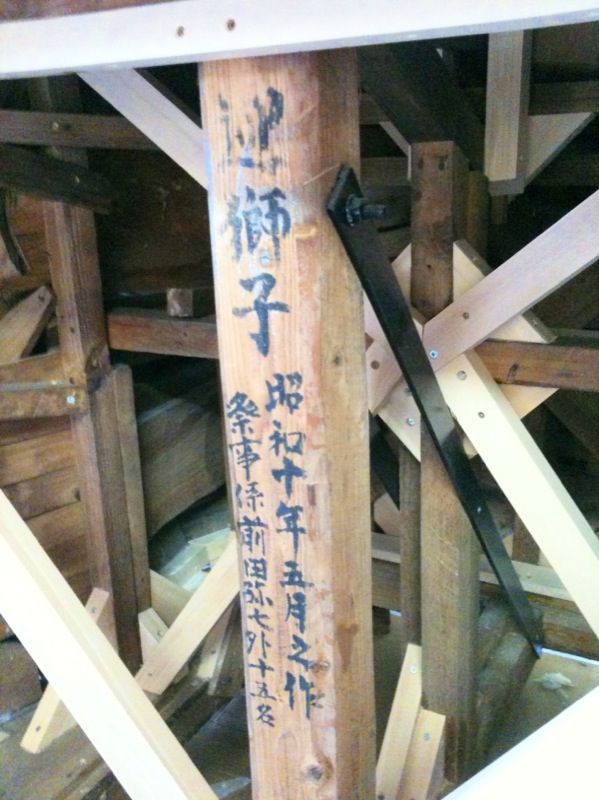 獅子
昭和十年五月之作
祭事係前田弥七外十五名